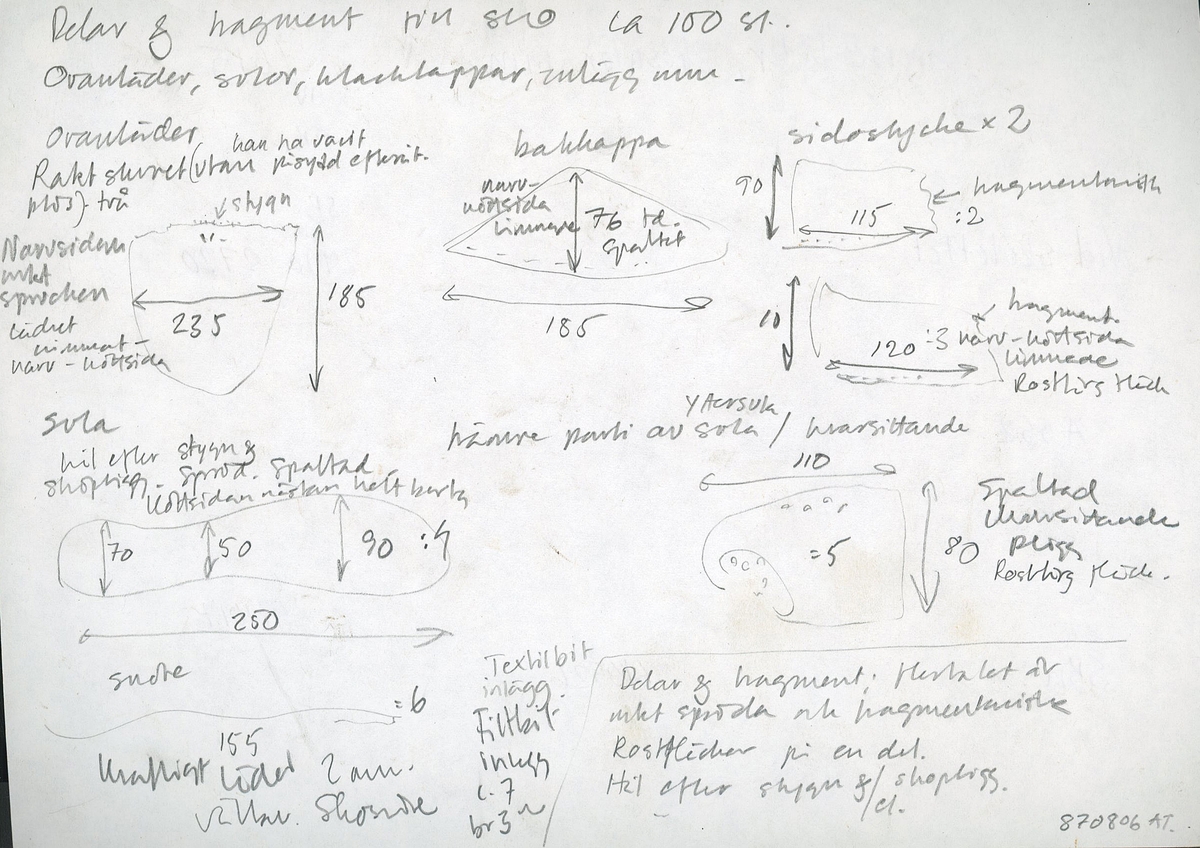 Delar & fragment till sko ca 100 st.
Ovanläder, sulor, klacklappar, inlägg mm -
Ovanläder,
Rakt skuret (utan kan ha varit
plös) två
stygn
Narvsidan
mkt
sprucken
Lädret
narv - köttsida
235
185
bakkappa
narv-
köttsida
76
Spaltet
185
sidostycke x 2
90
115
:2
fragmentarisk
10
120
:3
fragment.
narv-köttsida
Rostfärg fläck
Sula
hål efter stygn &
skopligg. spröd. spaltad
köttsidan nästan helt borta
70
50
90
:4
250
främre parti av sula / kvarsittande
yttersula
110
=5
80
Spaltad
kvarsittande
pligg
Rostfärg fläck.
=6
155
kraftigt läder 2 mm.
Textilbit
inlägg.
Filtbit
inlägg
L. 7
br 3
Delar & fragment; flertalet är
mkt spröda och fragmentariska
Rostfläckar på en del.
Hål efter stygn &/ skopligg.
el.
870806 AT.